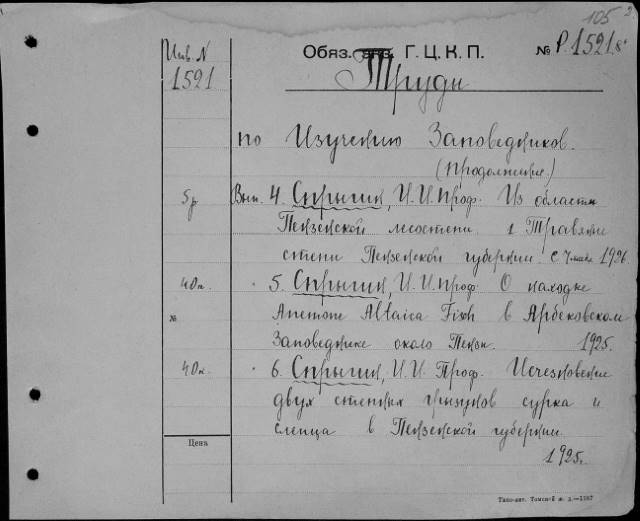 105
Инв. N
1591
Обяз. экз. Г. Ц. К. П. № Р. 1591
Труды
по Изучению Заповедников.
(Продолжение.)
5р Вып. 4. Спрыгин, И. И. проф. Из области
Пензенской лесостепи. 1 Травяные
степи Пензенской губернии. с 1926.
40к. " 5. Спрыгин, И. И. проф. О находке
№ Anemone Altaica Fisch в Арбековском
Заповеднике около Пензы. 1925.
40к. " 6. Спрыгин, И. И. Проф. Исчезновение
двух степных грызунов сурка и
слепца в Пензенской губернии.
Цена
1925г.
Типо-лит. Томской ж. д.—1987